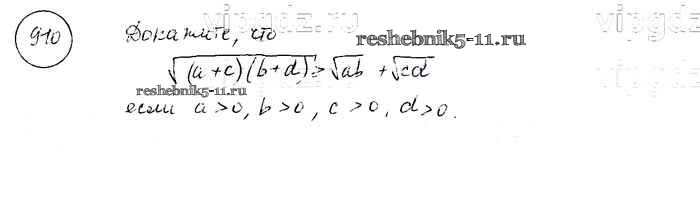 vipgdz.ru
910
Докажите, что
reshebnik5-11.ru
√(a+c)(b+d) > √ab + √cd
reshebnik5-11.ru
если a>0, b>0, c>0, d>0.
vipgdz.ru